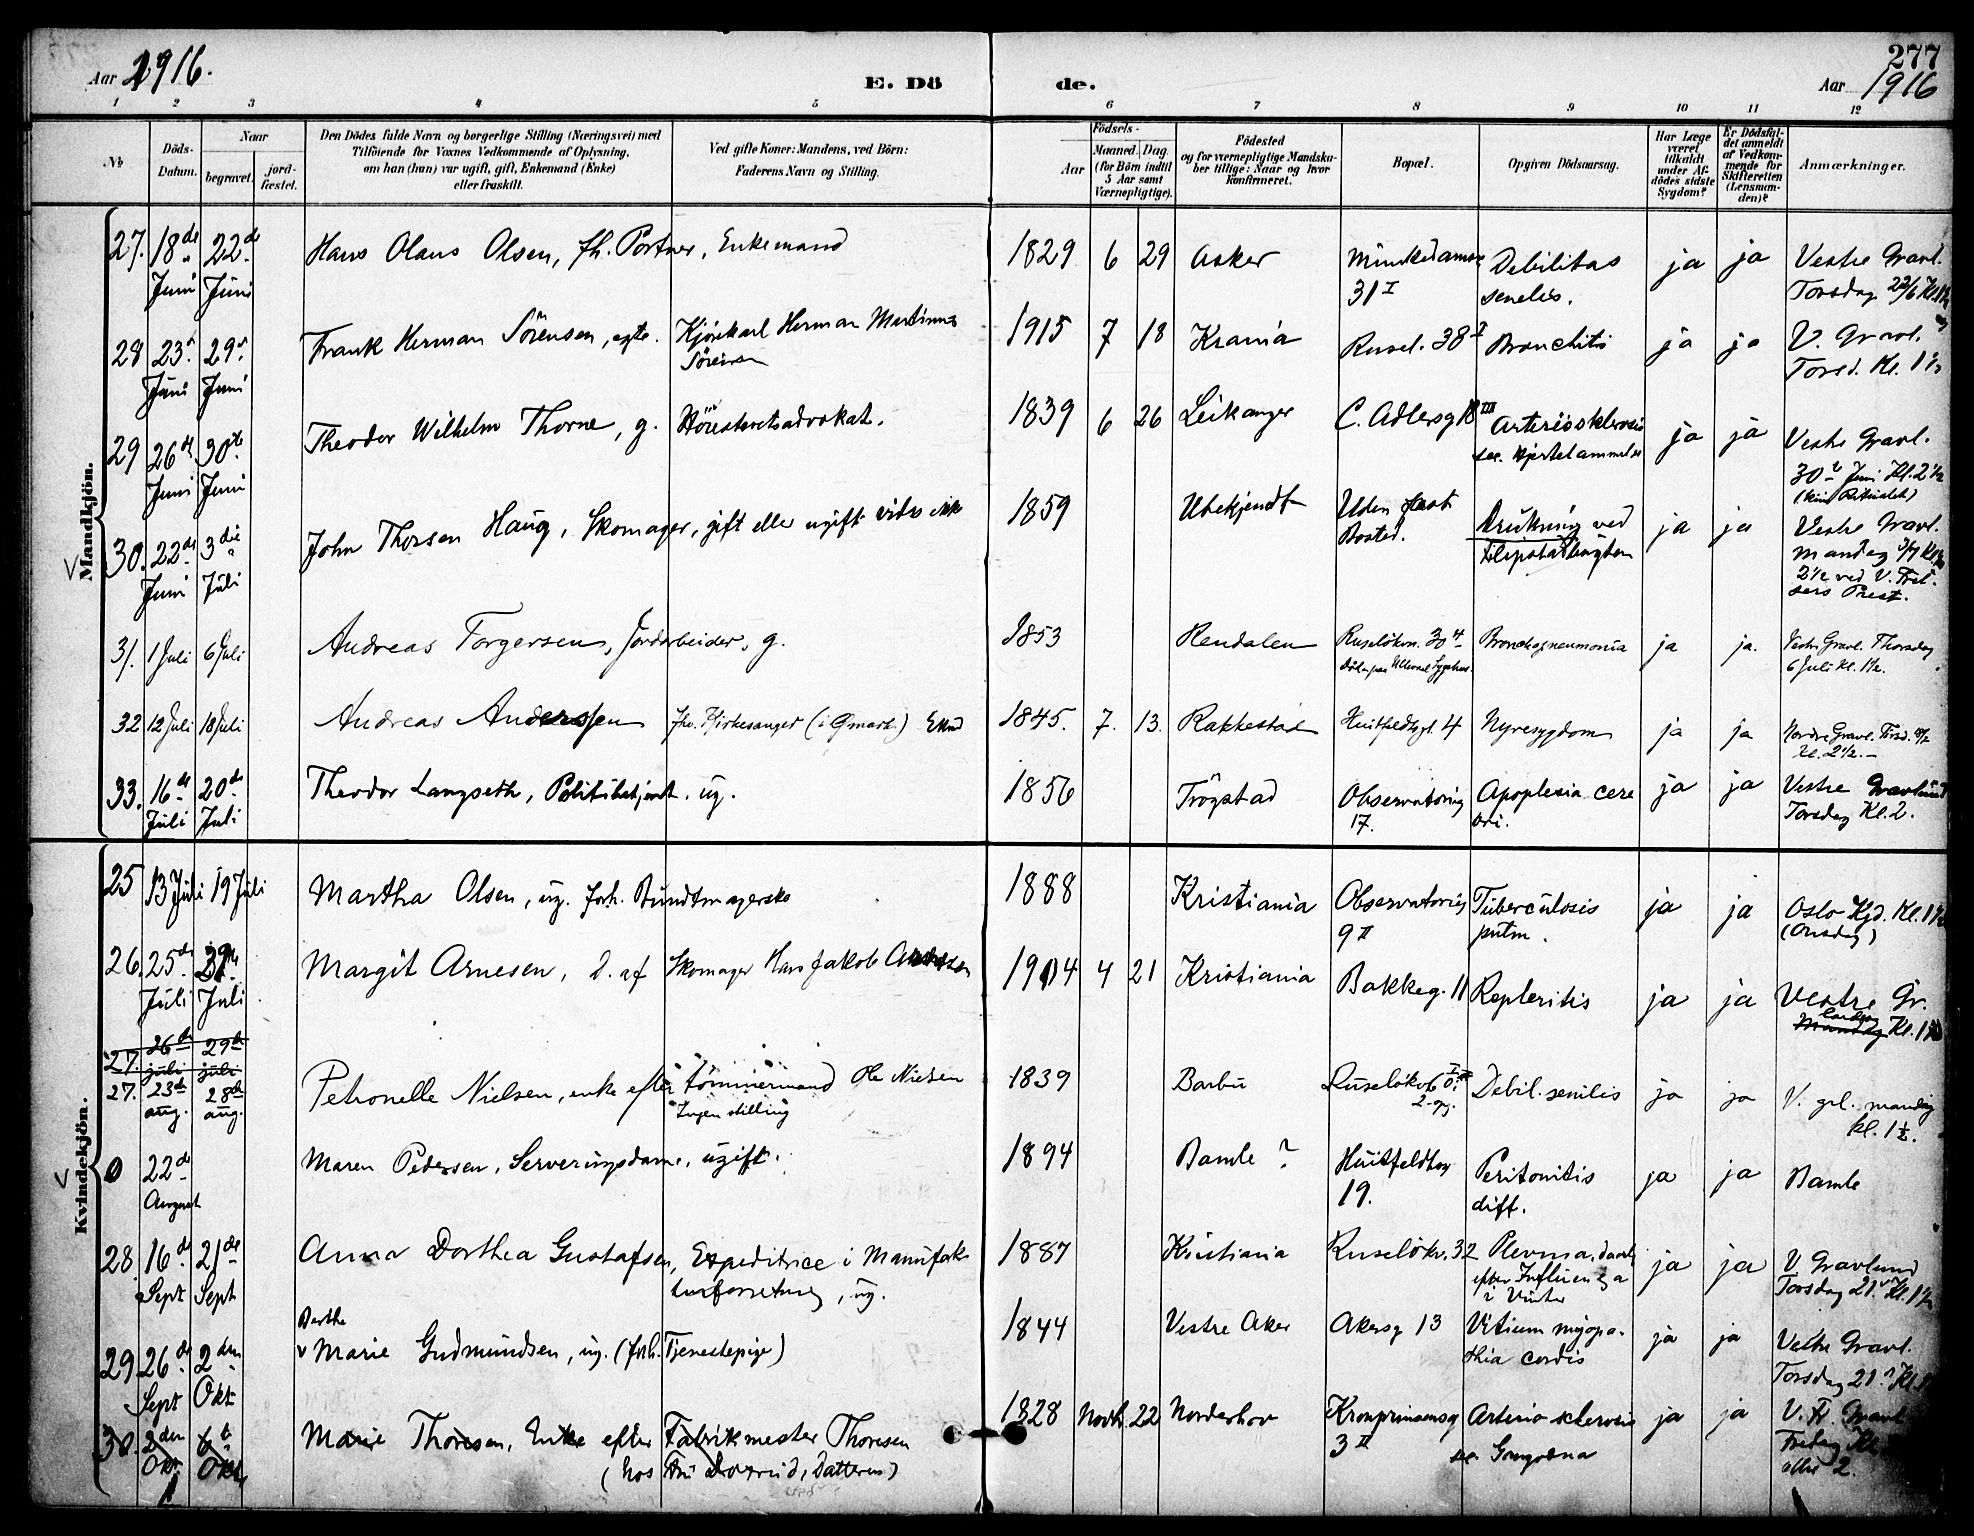 277
Aar 1916.
E. Dö
de.
Aar 1916
1 2 3 4 5 6 7 8 9 10 11 12
No
Döds-Datum.
Naar
begravet.
jord-fæstet.
Den Dödes fulde Navn og borgerlige Stilling (Næringsvei) med
Tilföiende for Voxnes Vedkommende af Oplysning,
om han (hun) var ugift, gift, Enkemand (Enke)
eller fraskilt.
Ved gifte Koner: Mandens, ved Börn:
Faderens Navn og Stilling.
Födsels-
Aar
Maaned. Dag.
(for Börn indtil
5 Aar samt
Værnepligtige).
Födested
og for værnepligtige Mandska-
ber tillige: Naar og hvor
Konfirmeret.
Bopæl.
Opgiven Dödsaarsag.
Har Læge
været
tilkaldt
under Af-
dödes sidste
Sygdom?
Er Dödsfal-
det anmeldt
af Vedkom-
mende for
Skifteretten
(Lensman-
den)?
Anmærkninger.
Mandkjön.
27. 18de Juni 22de Juni Hans Olaus Olsen, fh. Portner, Enkemand 1829 6 29 Asker Munkedamsv 31 I Debilitas senilis. ja ja Vestre Gravl.
Torsdag 22/6 Kl.
28 23. Juni 29. Juni Frank Herman Sörensen, egte. Kjörekarl Herman Martinius Sörensen 1915 7 18 Krania Rusel. 38 I Bronchitis ja ja V. Gravl.
Torsd. Kl. 1½
29 26de Juni 30te Juni Theodor Wilhelm Thorne, g. Höiesteretsadvokat. 1839 6 26 Leikanger C. Adlersg 18 III Arteriosklerosis sec. Hjertelammelse ja ja Vestre Gravl.
30 Juni Kl. 2½
(kun Ritualet)
30. 22de Juni 3die Juli John Thorsen Haug, Skomager, gift eller ugift vides ikke 1859 Ubekjendt Uden fast Bosted. Drukning ved Filipstadbugten ja ja Vestre Gravl.
Mandag 3/7 Kl.
2½ ved V. Frel-
sers Prest.
31. 1 Juli 6 Juli Andreas Torgersen, Jordarbeider, g. 1853 Rendalen Ruselökvn. 30 4 döde paa Ullevaal Sygehus. Bronchopneumonia ja ja. Vestre Gravl. Thorsdag
6 Juli kl. 1½.
32 12 Juli 18 Juli Andreas Anderssen fhv. Kirkesanger (i Qmark) Ekmd 1845. 7. 13. Rakkestad Huitfeldtsgt. 4 Nyresygdom ja ja Nordre Gravl. Tirsd. 18/7
Kl. 2½.
33. 16de Juli 20de Juli Theodor Langseth, Politibetjent, ug. 1856 Trögstad Observatorig 17. Apoplexia cerebri. ja ja Vestre Gravlund
Torsdag Kl. 2.
Kvindekjön.
25 13 Juli 19 Juli Martha Olsen, ug. forh. Buntmagerske 1888 Kristiania Observatorieg 9 II Tuberculosis pulm. ja ja Oslo Kgd. Kl. 1½
(Onsdag)
26. 25de Juli Juli Margit Arnesen, D. af Skomager Hans Jakob 1904 4 21 Kristiania Bakkeg. 11 ja ja Vestre Gr.
Mandag Kl. 1½
27. 26de juli 29de juli
27. 23de aug. 28de aug. Petronelle Nielsen, enke efter tömmermand Ole Nielsen
Ingen stilling 1839 Barbu Ruselökv 2. opg. Debil. senilis ja ja V. grl. mandag
kl. 1½.
0 22de August Maren Pedersen, Serveringsdame, ugift. 1894 Bamle ? Huitfeldtsg 19. Peritonitis diff. ja ja Bamle
28. 16de Sept 21de Sept Anna Dorthea Gustafsen, Expeditrice i Manufak-
turforretning, ug. 1887 Kristiania Ruselökv. 32 efter Influenza i Vinter ja ja V Gravlund
Torsdag 21. Kl. 1½
29 26de Sept 2den Okt Berthe
Marie Gudmundsen, ug. (forh. Tjenestepige) 1844 Vestre Aker Akersg 13 Vitium myopa-
thia cordis ja ja Vestre Gravl.
Torsdag 21. Kl.
30. 2den Okt 6te Okt Marie Thoresen, Enke efter Fabrikmester Thoresen
(hos Fru , Datteren) 1828 Novbr. 22 Norderhov Kronprinsensg 3 II Arterio sclerosis sec Gangræna ja ja V. Fr. Gravl
Fredag Kl
eller 2.